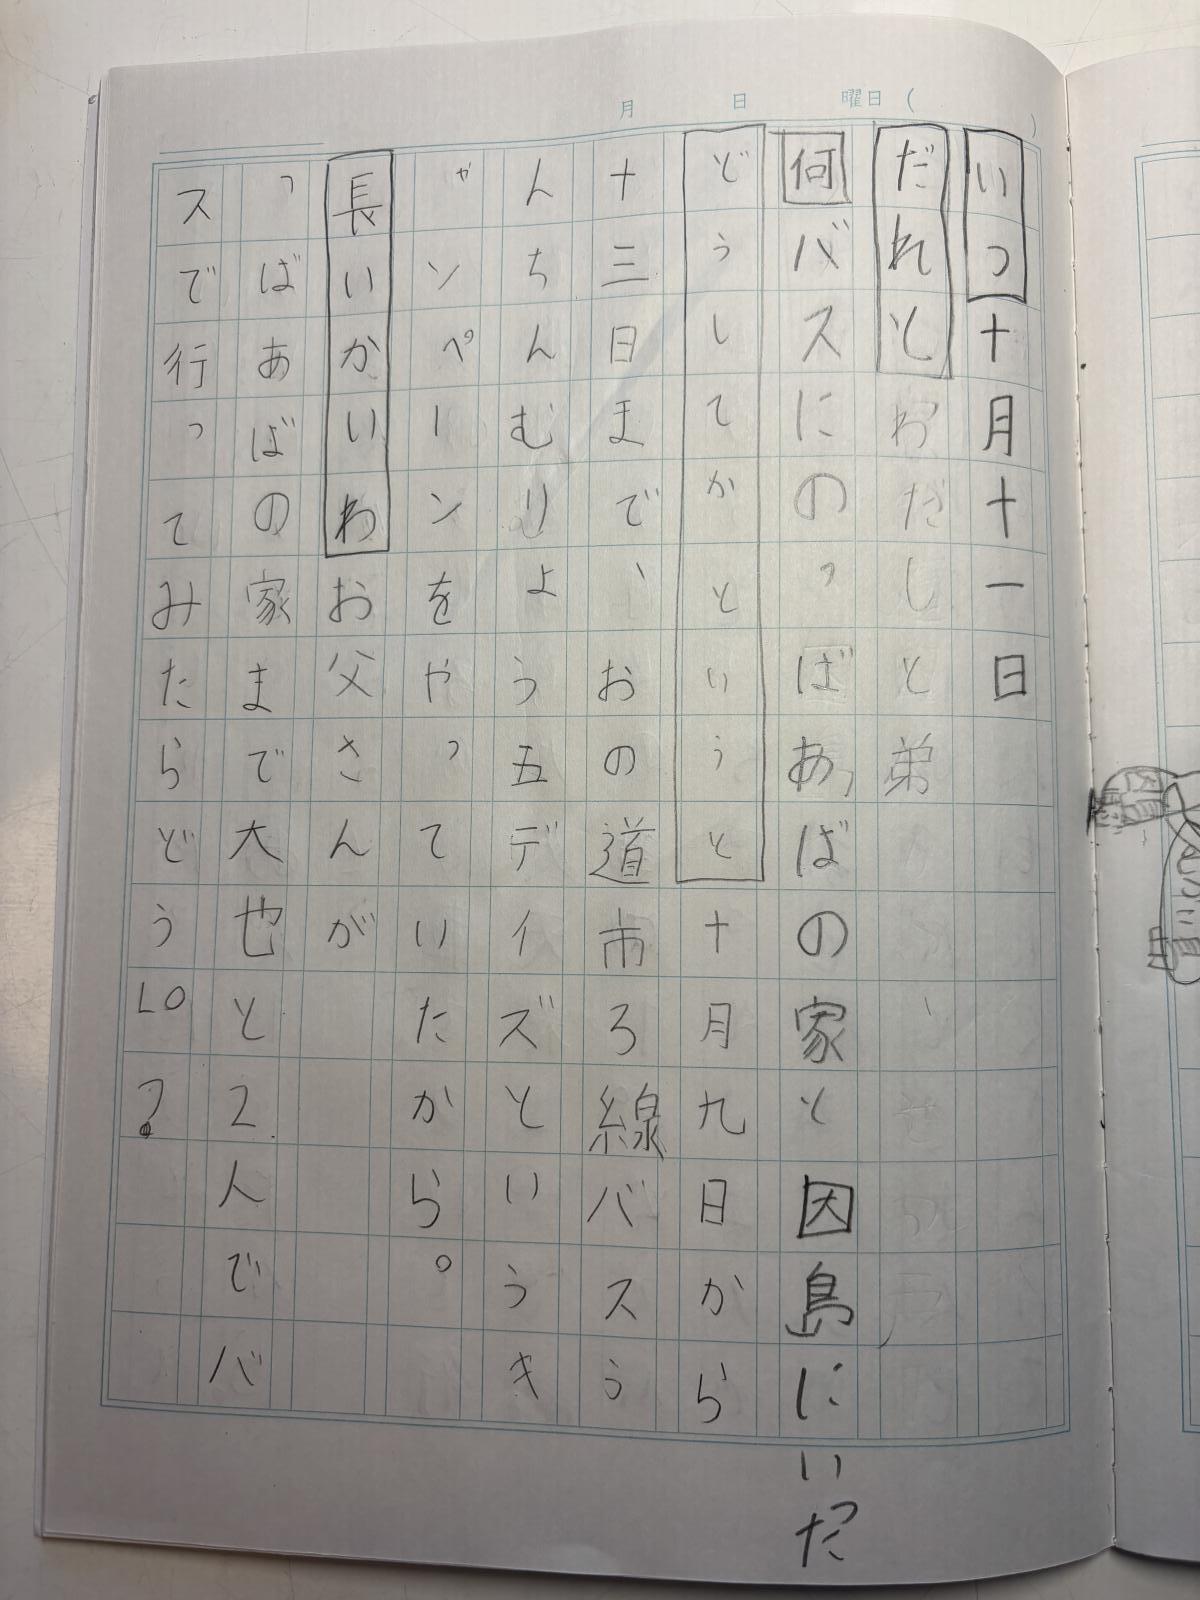 月 日 曜日( )
いつ十月十一日
だれとわたしと弟
何バスにのっばあばの家と因島にいった
どうしてかというと十月九日から
十三日まで、おの道市ろ線バスう
んちんむりょう五デイズというキ
ャンペーンをやっていたから。
長いかいわお父さんが
っばあばの家まで大也と2人でバ
スで行ってみたらどう?